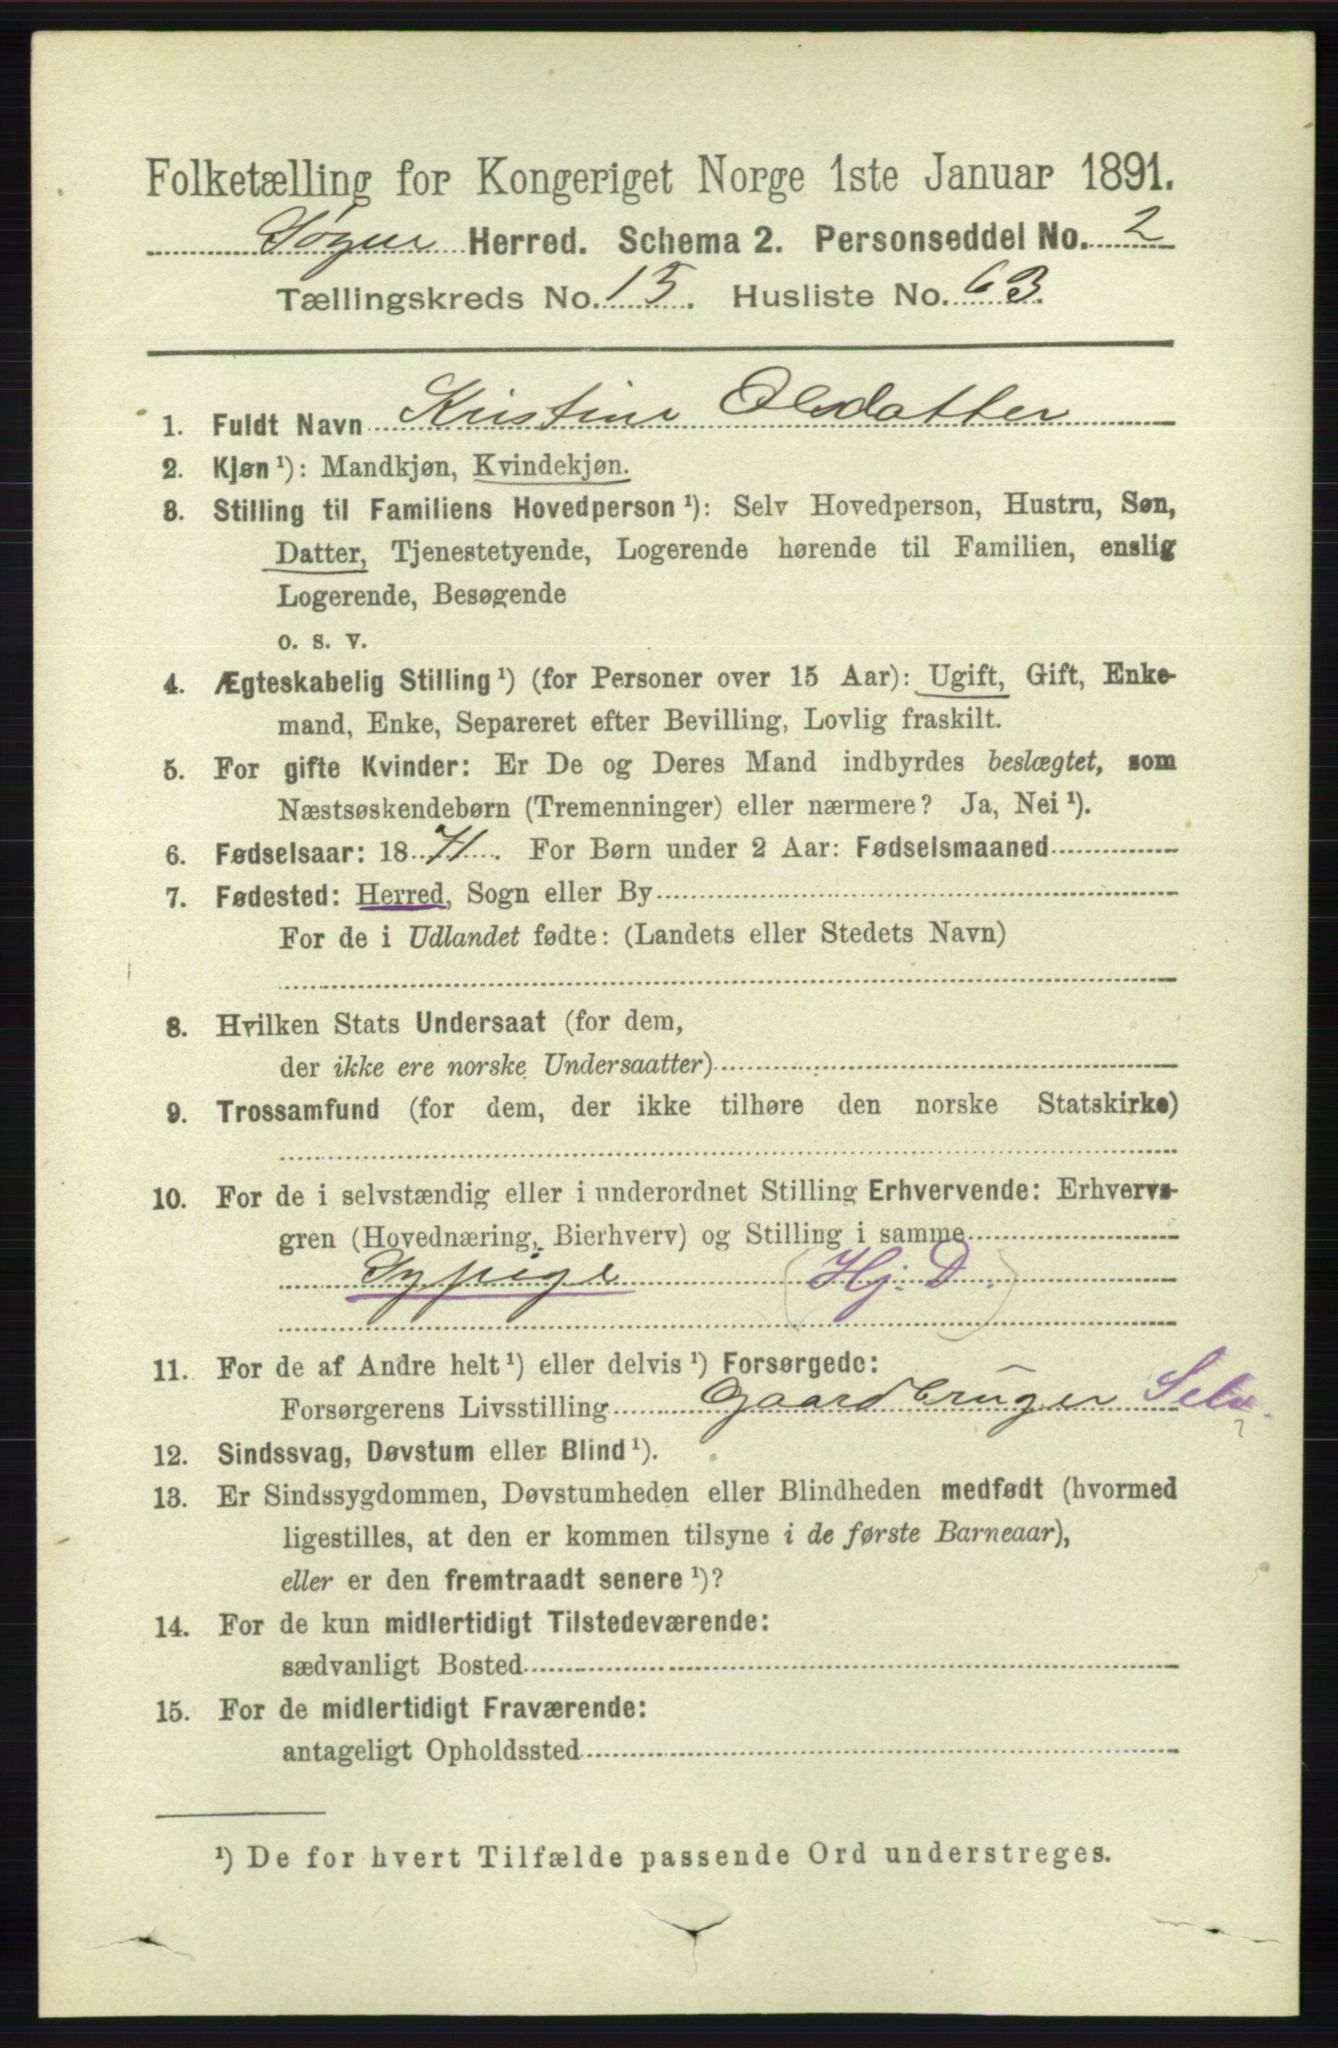 Folketælling for Kongeriget Norge 1ste Januar 1891.
Søgne Herred. Schema 2. Personseddel No. 2
Tællingskreds No. 15. Husliste No. 63.
1. Fuldt Navn Kristine Olsdatter
2. Kjøn ¹): Mandkjøn, Kvindekjøn.
3. Stilling til Familiens Hovedperson ¹): Selv Hovedperson, Hustru, Søn,
Datter, Tjenestetyende, Logerende hørende til Familien, enslig
Logerende, Besøgende
o. s. v.
4. Ægteskabelig Stilling ¹) (for Personer over 15 Aar): Ugift, Gift, Enke-
mand, Enke, Separeret efter Bevilling, Lovlig fraskilt.
5. For gifte Kvinder: Er De og Deres Mand indbyrdes beslægtet, som
Næstsøskendebørn (Tremenninger) eller nærmere? Ja, Nei ¹).
6. Fødselsaar: 1871. For Børn under 2 Aar: Fødselsmaaned
7. Fødested: Herred, Sogn eller By
For de i Udlandet fødte: (Landets eller Stedets Navn)
8. Hvilken Stats Undersaat (for dem,
der ikke ere norske Undersaatter)
9. Trossamfund (for dem, der ikke tilhøre den norske Statskirke)
10. For de i selvstændig eller i underordnet Stilling Erhvervende: Erhvervs-
gren (Hovednæring, Bierhverv) og Stilling i samme
Sypige (Hj. D.)
11. For de af Andre helt ¹) eller delvis ¹) Forsørgede:
Forsørgerens Livsstilling Gaardbruger Selv ?
12. Sindssvag, Døvstum eller Blind ¹).
13. Er Sindssygdommen, Døvstumheden eller Blindheden medfødt (hvormed
ligestilles, at den er kommen tilsyne i de første Barneaar),
eller er den fremtraadt senere ¹)?
14. For de kun midlertidigt Tilstedeværende:
sædvanligt Bosted
15. For de midlertidigt Fraværende:
antageligt Opholdssted
¹) De for hvert Tilfælde passende Ord understreges.